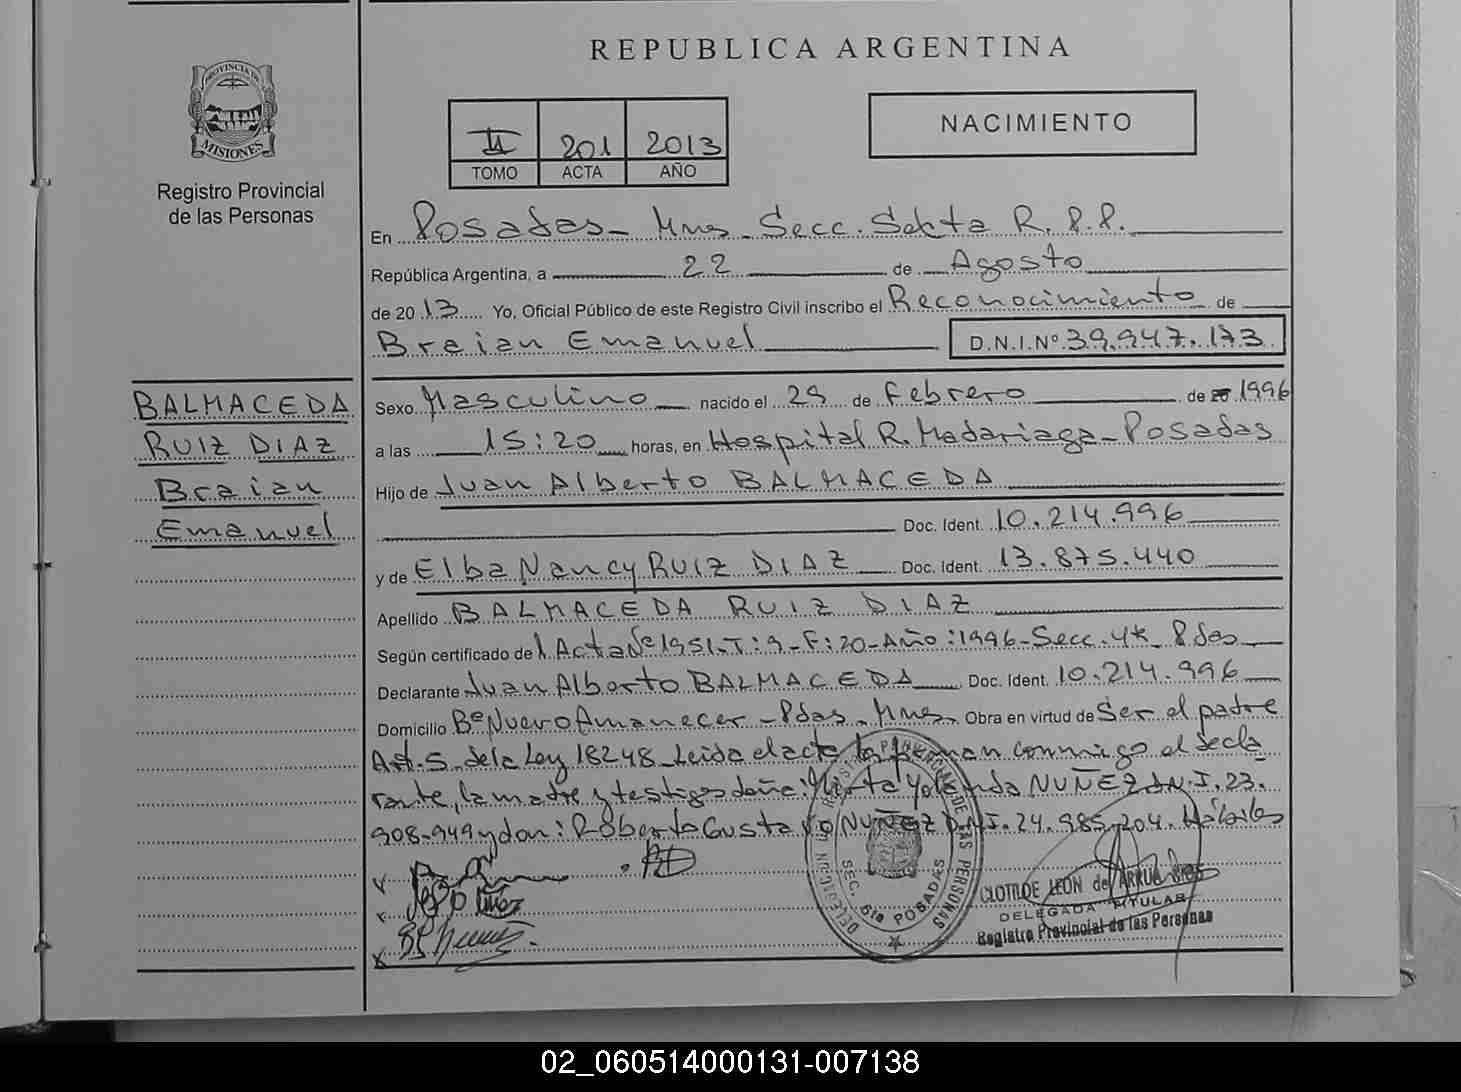 REPUBLICA ARGENTINA
PROVINCIA DE
MISIONES
Registro Provincial
de las Personas
II 201 2013
TOMO ACTA AÑO
NACIMIENTO
En Posadas - Mnes - Secc. Sexta R.P.P.
República Argentina, a 22 de Agosto
de 2013 Yo, Oficial Público de este Registro Civil inscribo el Reconocimiento de
Braian Emanuel D.N.I.Nº 39.947.173
BALMACEDA
RUIZ DIAZ
Braian
Emanuel
Sexo Masculino nacido el 29 de Febrero de 1996
a las 15:20 horas, en Hospital R. Madariaga - Posadas
Hijo de Juan Alberto BALMACEDA
Doc. Ident. 10.214.996
y de Elba Nancy RUIZ DIAZ Doc. Ident. 13.875.440
Apellido BALMACEDA RUIZ DIAZ
Según certificado del Acta Nº 1951-T:9-F:20-Año:1996-Secc. 4ª Pdas
Declarante Juan Alberto BALMACEDA Doc. Ident. 10.214.996
Domicilio Bº Nuevo Amanecer - Pdas. Mnes. Obra en virtud de Ser el padre
Art. 5 de la Ley 18248 Leida el acta la firman conmigo el decla
rante, la madre y testigos doña: Mirta Yolanda NUÑEZ D.N.I. 23.
908.949 y don: Roberto Gustavo NUÑEZ D.N.I. 24.985.204. Hábiles
REGISTRO PROVINCIAL DE LAS PERSONAS
DELEGACION
SEC. 6ta POSADAS
CLOTILDE LEON de ARRUA
DELEGADA TITULAR
Registro Provincial de las Personas
02_060514000131-007138